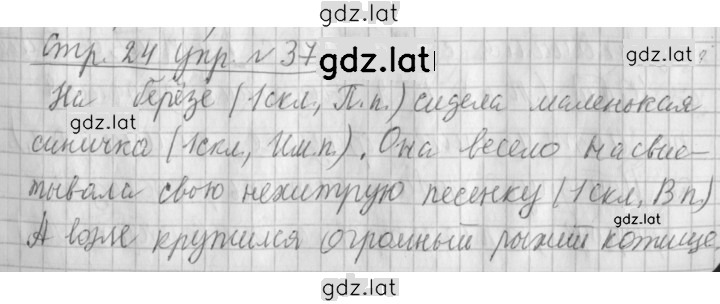 gdz.lat
стр. 24 упр. № 37
gdz.lat
На берёзе (1скл, П.п.) сидела маленькая
gdz.lat
синичка (1скл, Им.п.). Она весело насвис-
тывала свою нехитрую песенку (1скл, Вп)
gdz.lat
А возле крутился огромный рыжий котище
gdz.lat